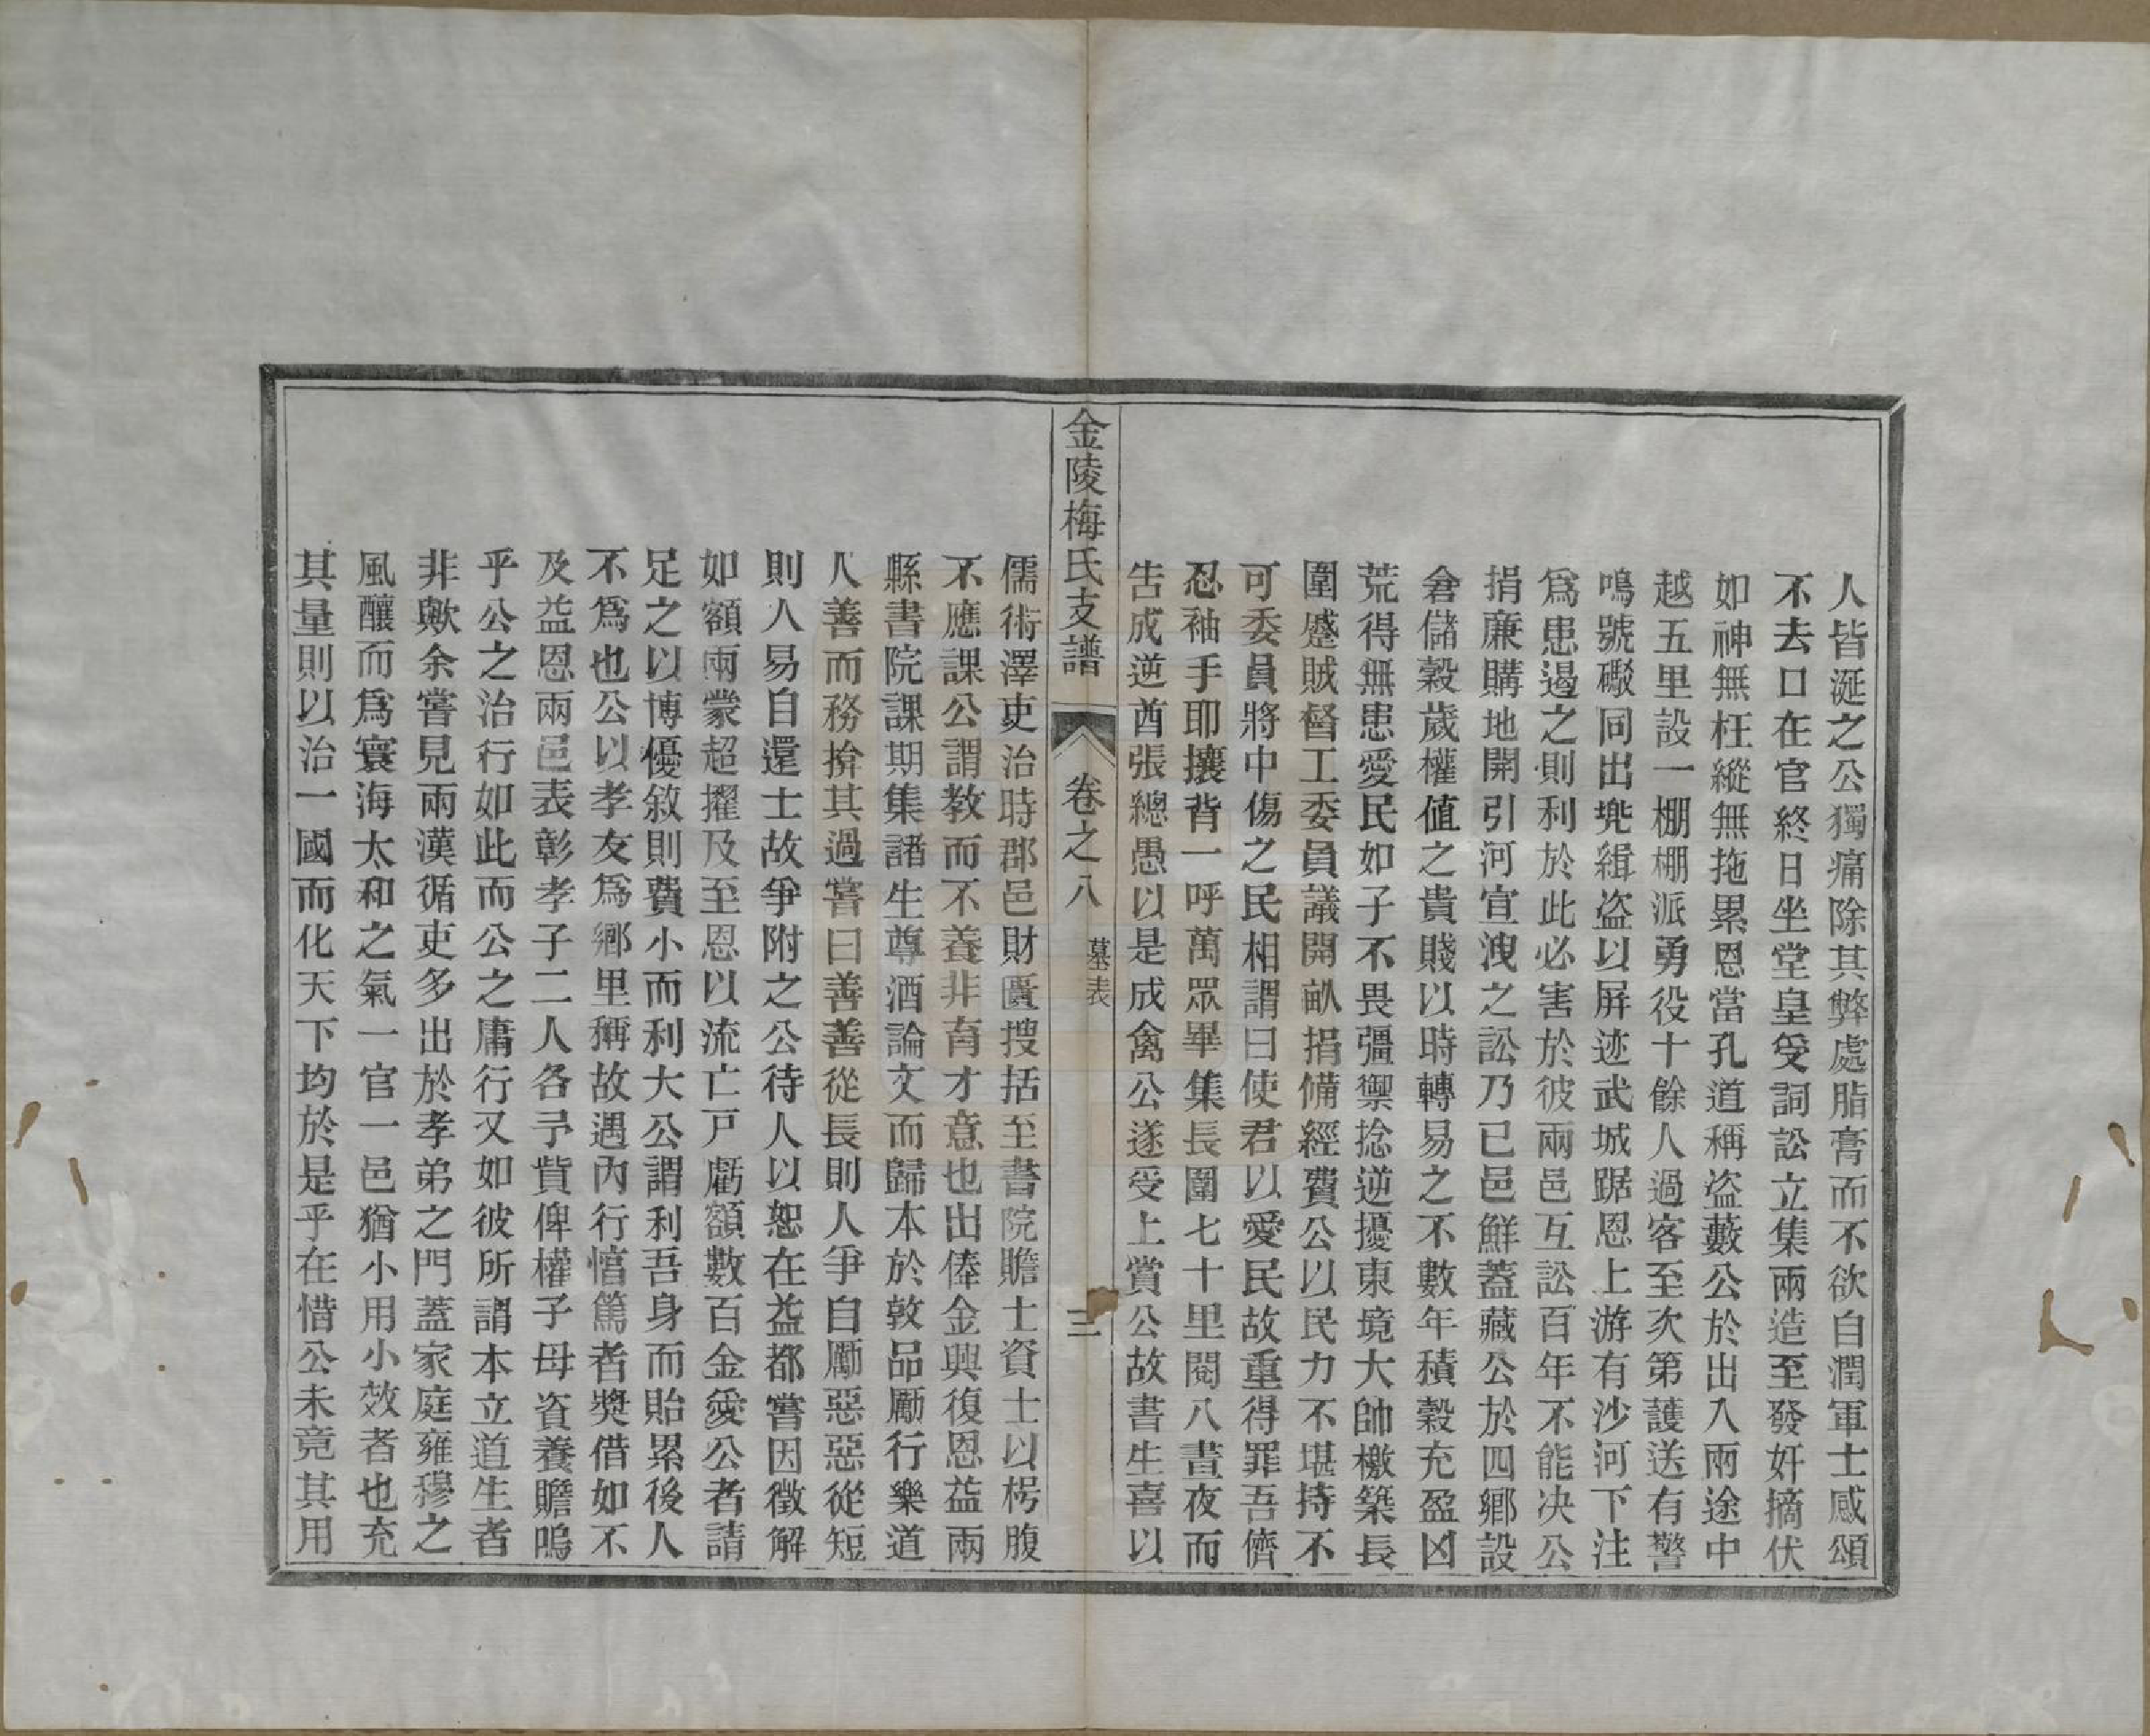 人皆涎之公獨痛除其弊處脂膏而不欲自潤軍士感頌
不去口在官終日坐堂皇受詞訟立集兩造至發奸摘伏
如神無枉縱無拖累恩當孔道稱盜藪公於出入兩途中
越五里設一棚棚派勇役十餘人過客至次第護送有警
鳴號礮同出兠緝盜以屏迹武城踞恩上游有沙河下注
爲患遏之則利於此必害於彼兩邑互訟百年不能決公
捐廉購地開引河宣洩之訟乃已邑鮮蓋藏公於四鄉設
倉儲穀歲權值之貴賤以時轉易之不數年積穀充盈凶
荒得無患愛民如子不畏彊禦捻逆擾東境大帥檄築長
圍蹙賊督工委員議開畝捐備經費公以民力不堪持不
可委員將中傷之民相謂曰使君以愛民故重得罪吾儕
忍袖手耶攘背一呼萬眾畢集長圍七十里閱八晝夜而
告成逆酋張總愚以是成禽公遂受上賞公故書生喜以
金陵梅氏支譜
卷之八
墓表
三
儒術澤吏治時郡邑財匱搜括至書院贍士資士以枵腹
不應課公謂教而不養非育才意也出俸金興復恩益兩
縣書院課期集諸生尊酒論文而歸本於敦品勵行樂道
人善而務揜其過嘗曰善善從長則人爭自勵惡惡從短
則人易自還士故爭附之公待人以恕在益都嘗因徵解
如額兩蒙超擢及至恩以流亡戸虧額數百金愛公者請
足之以博優敘則費小而利大公謂利吾身而貽累後人
不爲也公以孝友爲鄉里稱故遇內行愔篤者獎借如不
及益恩兩邑表彰孝子二人各予貲俾權子母資養贍嗚
乎公之治行如此而公之庸行又如彼所謂本立道生者
非歟余嘗見兩漢循吏多出於孝弟之門蓋家庭雍穆之
風釀而爲寰海太和之氣一官一邑猶小用小效者也充
其量則以治一國而化天下均於是乎在惜公未竟其用